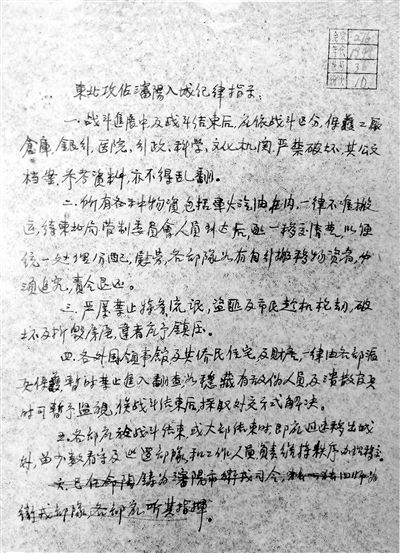 东北攻佔瀋陽入城纪律指示：
一、战斗進展中及战斗结束后，应依战斗区分，保護工厰
倉庫、銀行、医院、行政、科学、文化机関，严禁破坏，其公文
档案、参考資料，亦不得乱翻。
二、所有各种物資包括車大汽油在内，一律不准搬
运，待東北局管制委員會人員到达后，统一移交清楚，以便
统一处理分配，慰劳，各部隊如有自行搬移物資者，必
須追究，责令退出。
三、严厲禁止特务流氓，盜匪及市民趁机抢劫，破
坏及拆毁房屋，違者应予镇压。
四、各外国領事館及其僑民住宅及财產，一律由各部派
兵保護，暂时禁止進入翻查，如隱藏有敌伪人員及溃散官兵
时可暂予监視，俟战斗结束后，採取外交方式解决。
五、各部应於战斗结束，或大部结束时即应迅速移出城
外，留少数看守及巡邏部隊和工作人員負责維持秩序
六、已任命陶鑄为瀋陽市衛戍司令
衛戍部隊，各部应听其指揮。